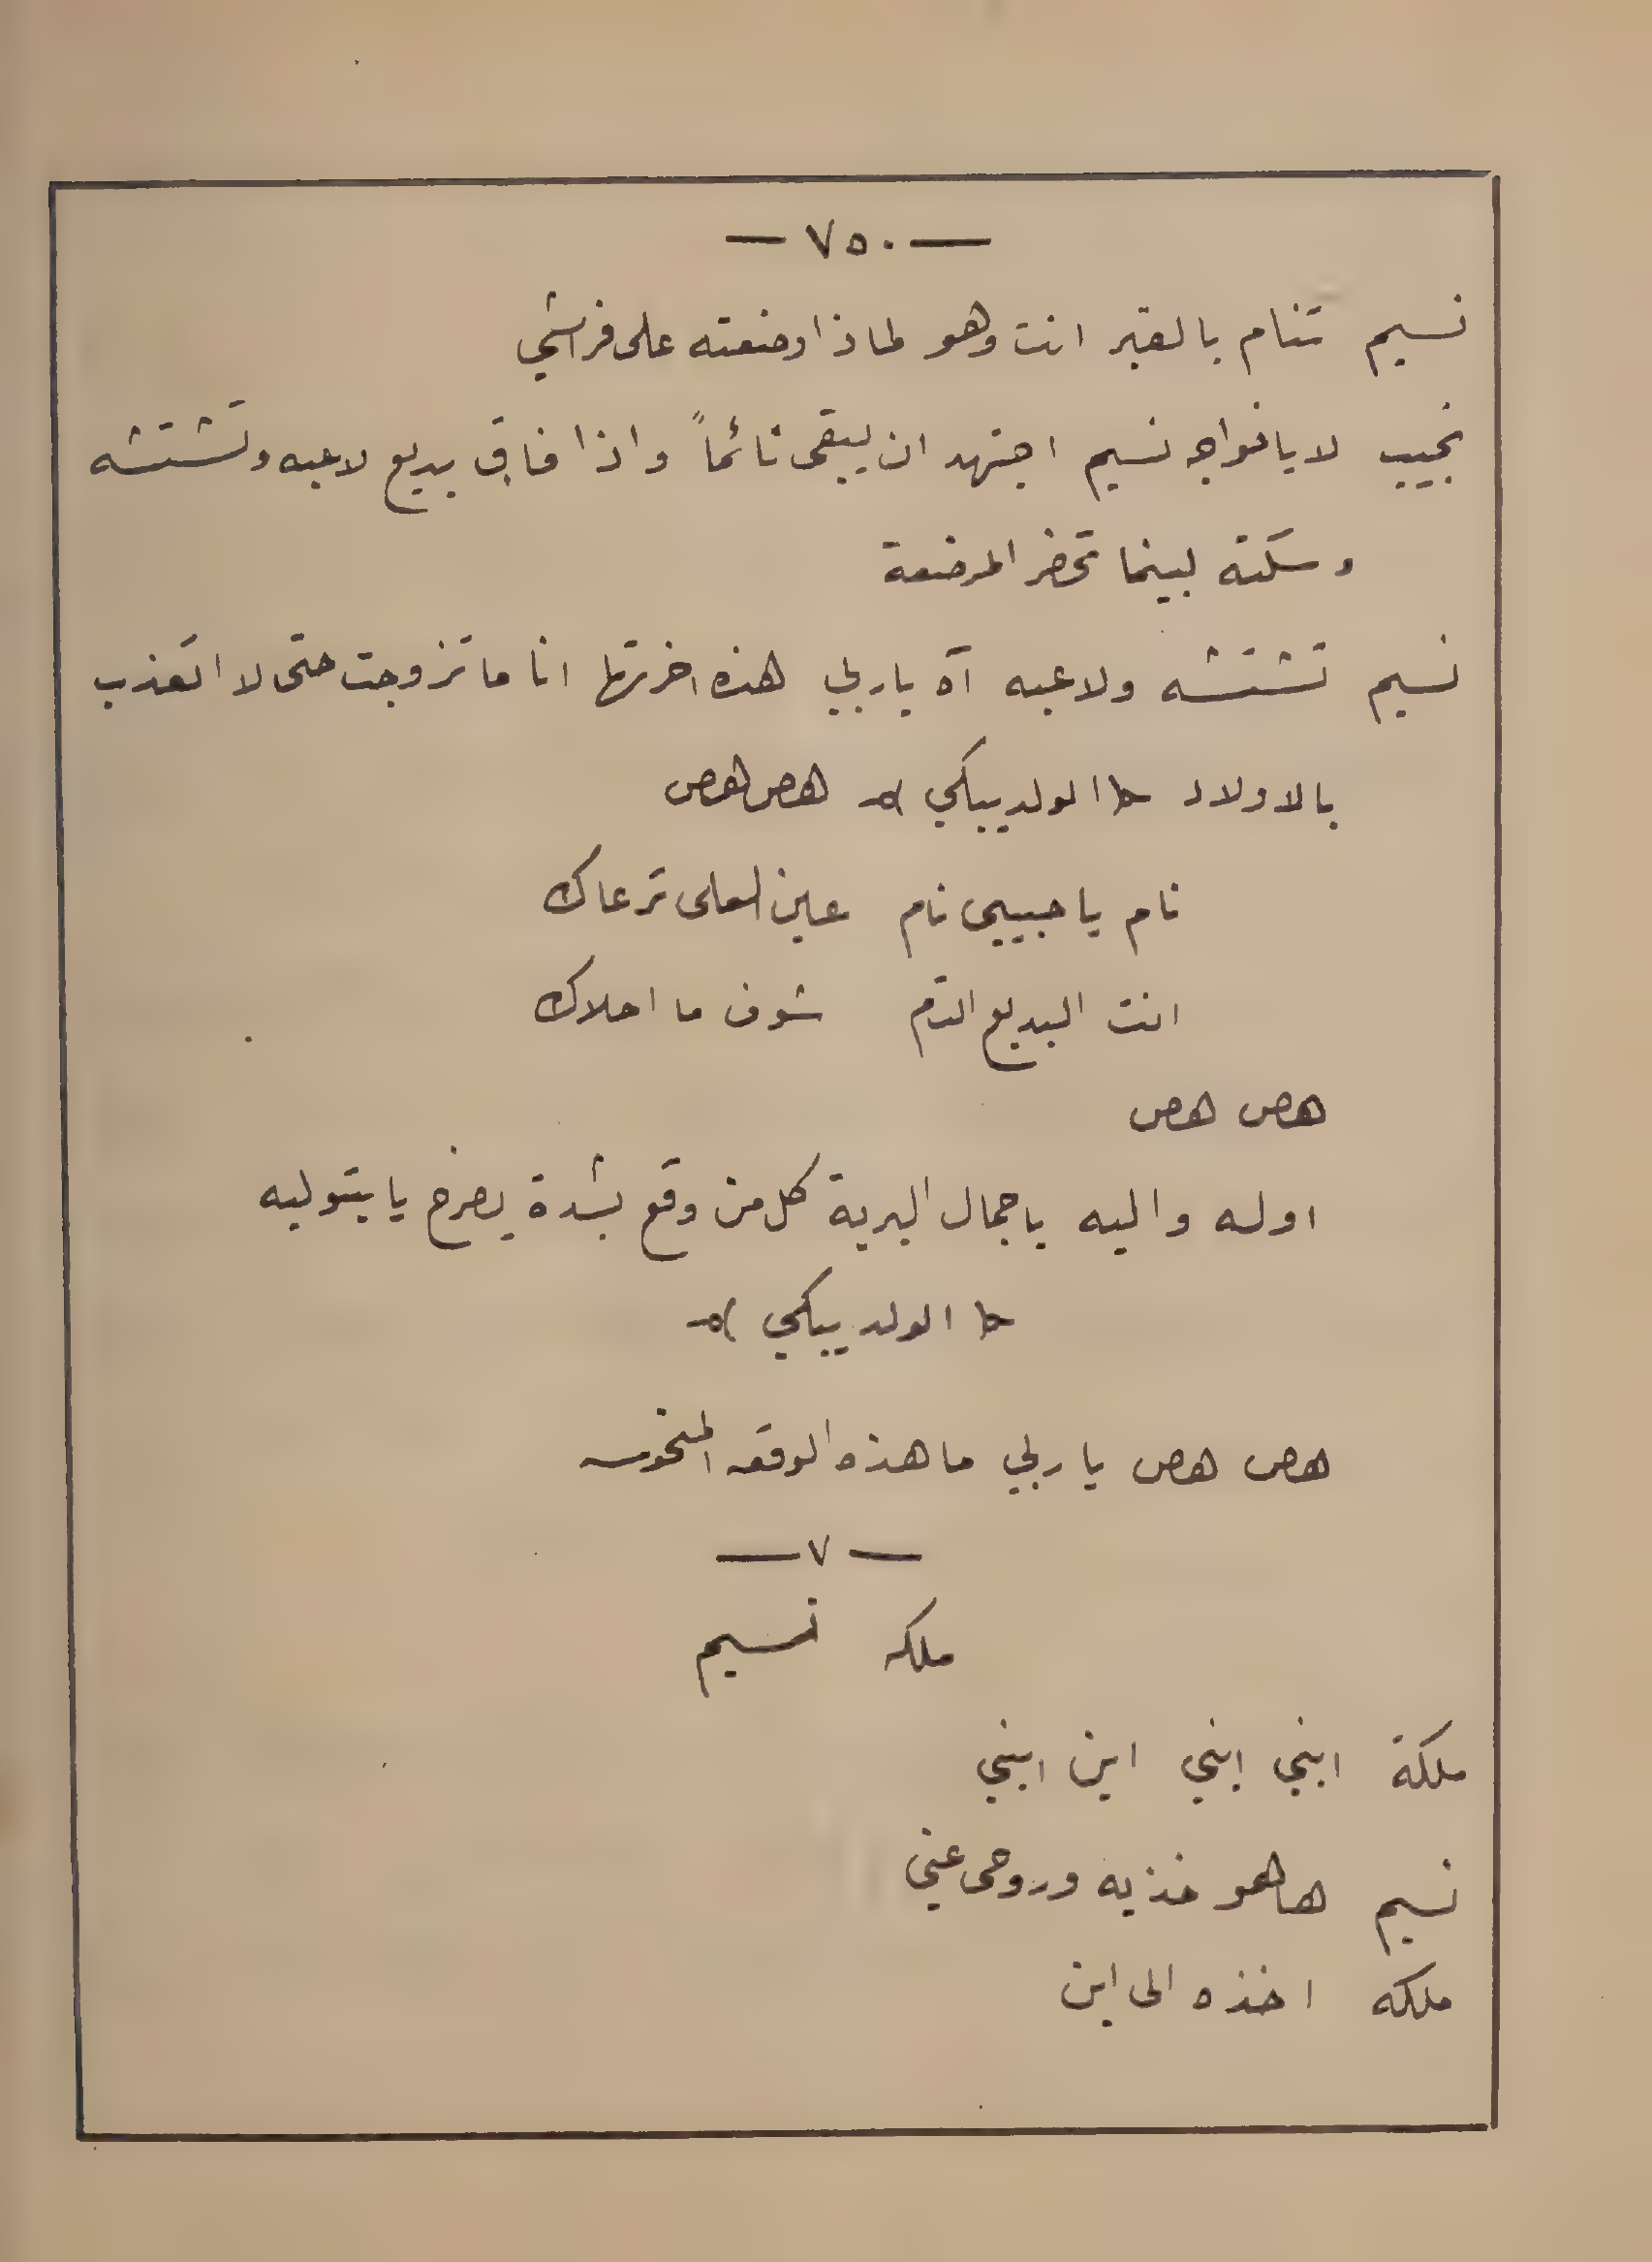 — ٧٥٠ —
نسيم تنام بالقبر انت وهو لماذا وضعته على فراشي
نجيب لا ياخواجه نسيم اجتهد ان يبقى نائماً واذا فاق بديع لاعبه وتشتشه
وسكته لبينما تحضر المرضعة
نسيم تشتشه ولاعبه آه ياربي هذه اخرتها انا ما تزوجت حتى لا اتعذب
بالاولاد (الولد يبكي) هص هص
نام يا حبيبي نام عين العلى ترعاك
انت البديع التم شوف ما احلاك
هص هص
اوله واليه ياجمال البرية كل من وقع بشدة يصرخ يا يتوليه
(الولد يبكي)
هص هص يا ربي ما هذه الوقعه المنحوسه
— ٧ —
ملكه نسيم
ملكة ابني ابني اين ابني
نسيم هاهو خذيه وروحى عني
ملكه اخذه الى اين